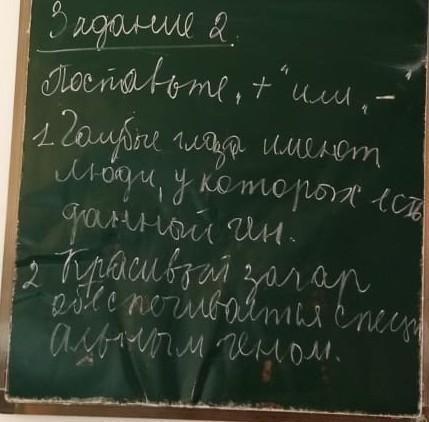 Задание 2.
Поставьте „+" или „-"
1 Голубые глаза имеют
люди, у которых есть
данный ген.
2 Красивый загар
обеспечивается специ
альным геном.